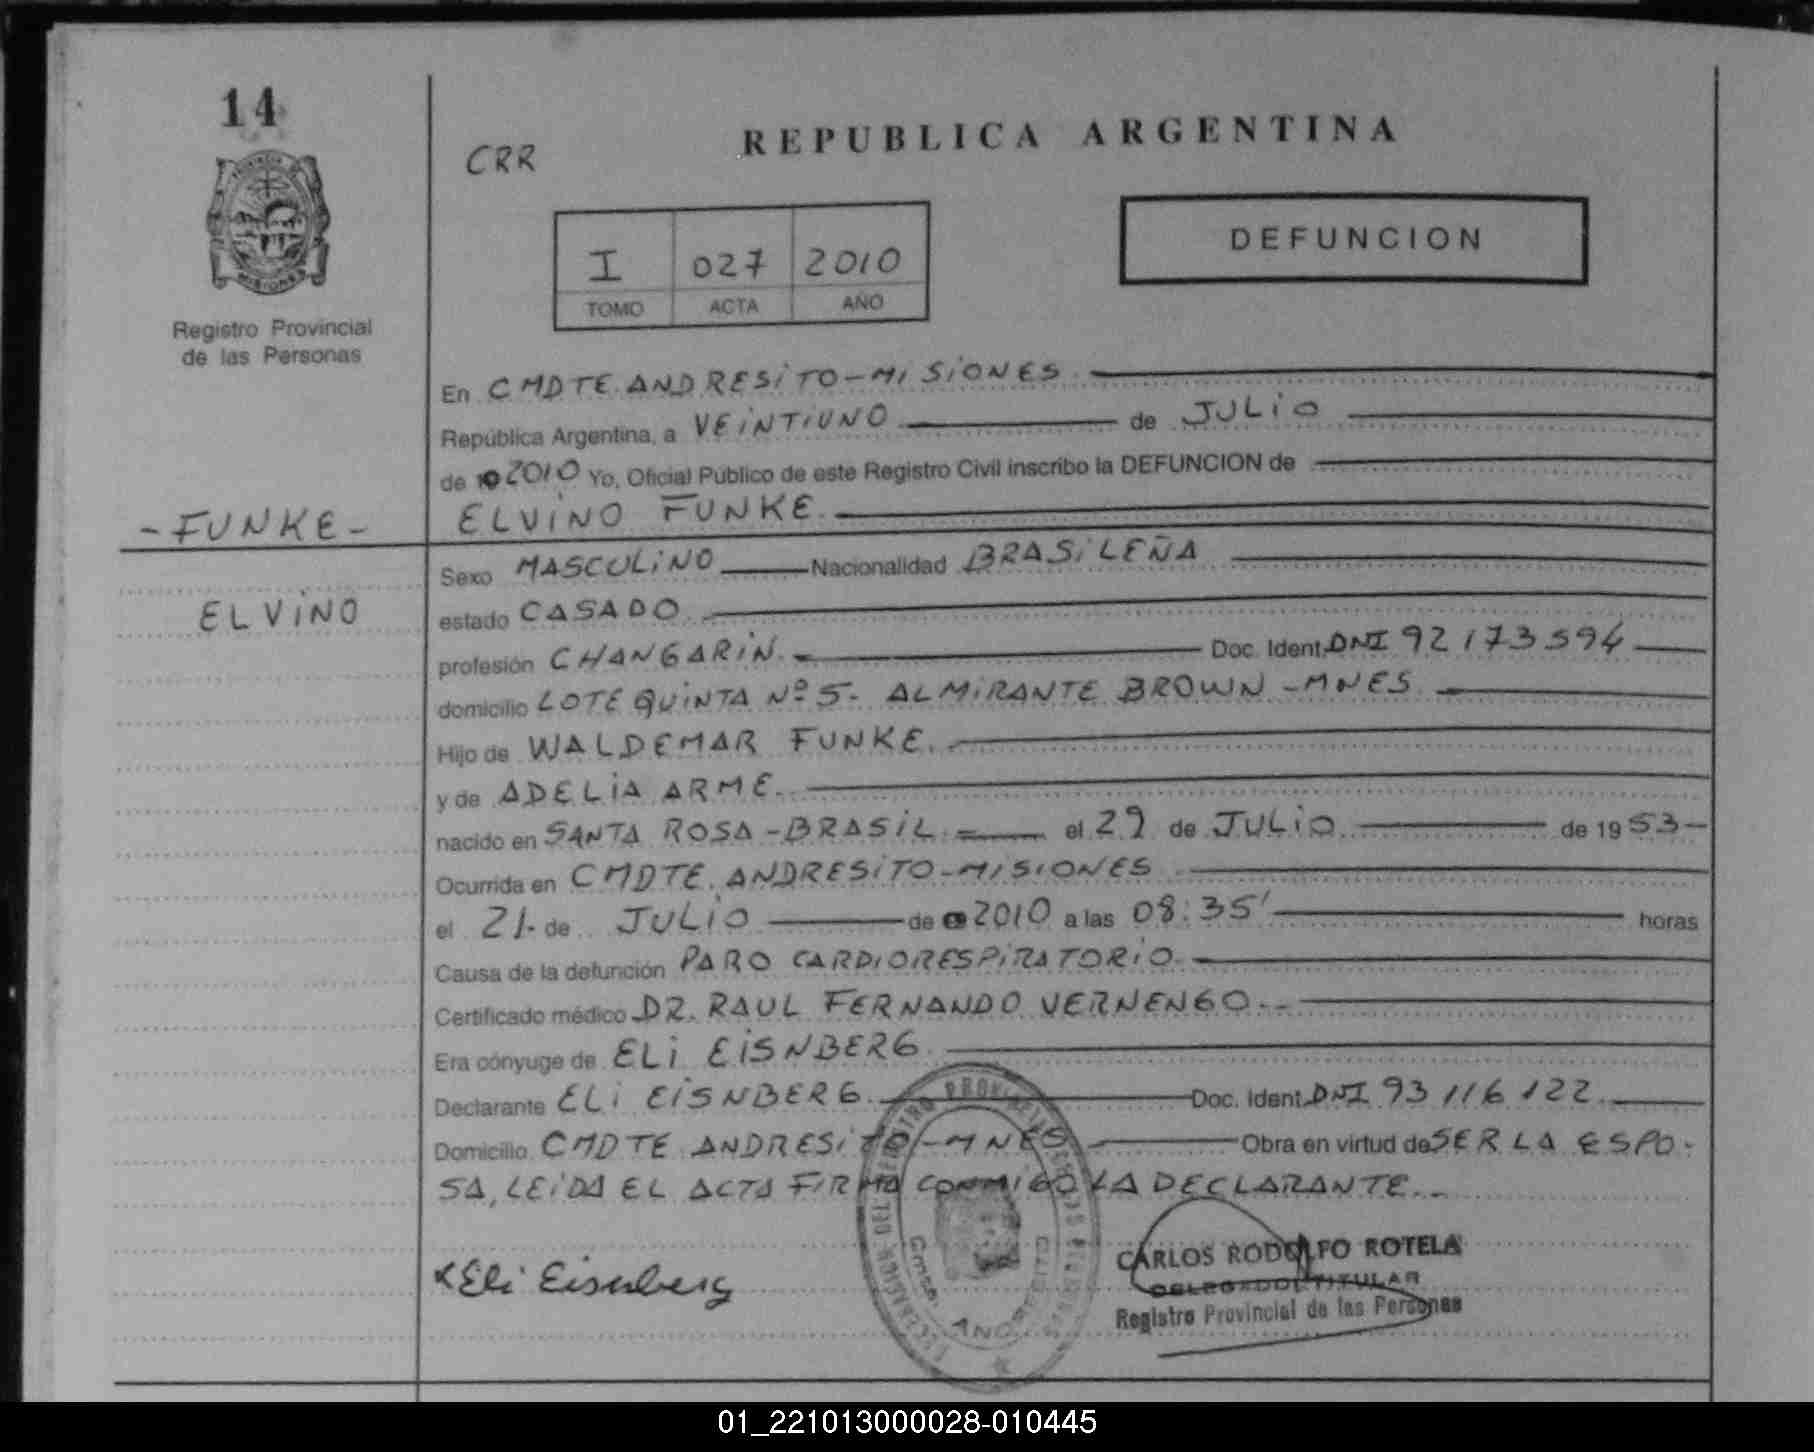 14
CRR
REPUBLICA ARGENTINA
DEFUNCION
I 027 2010
TOMO ACTA AÑO
MISIONES
Registro Provincial
de las Personas
En CMDTE. ANDRESITO-MISIONES
República Argentina, a VEINTIUNO de JULIO
de 2010 Yo, Oficial Público de este Registro Civil inscribo la DEFUNCION de
-FUNKE-
ELVINO FUNKE.
Sexo MASCULINO Nacionalidad BRASILEÑA
ELVINO
estado CASADO.
profesión CHANGARIN. Doc. Ident. DNI 92173594
domicilio LOTE QUINTA Nº 5- ALMIRANTE BROWN -MNES.
Hijo de WALDEMAR FUNKE.
y de ADELIA ARME.
nacido en SANTA ROSA-BRASIL. el 29 de JULIO de 1953
Ocurrida en CMDTE. ANDRESITO-MISIONES
el 21. de JULIO de 2010 a las 08:35' horas
Causa de la defunción PARO CARDIORESPIRATORIO.
Certificado médico DR. RAUL FERNANDO VERNENGO.-
Era cónyuge de ELI EISNBERG
Declarante ELI EISNBERG. Doc. Ident. DNI 93116122
Domicilio CMDTE ANDRESITO-MNES Obra en virtud de SER LA ESPO-
SA, LEIDA EL ACTA FIRMA CONMIGO LA DECLARANTE..
x Eli Eisenberg
CARLOS RODOLFO ROTELA
DELEGADO TITULAR
Registro Provincial de las Personas
01_221013000028-010445